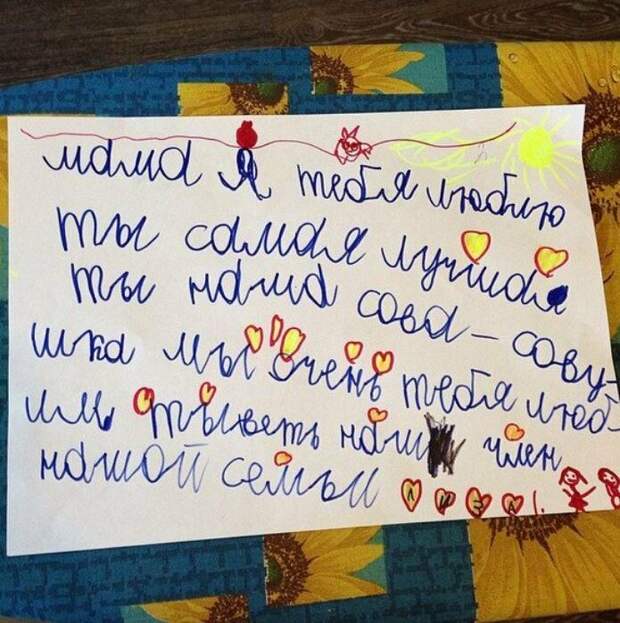 мама я тебя люблю
ты самая лучшая
ты наша сова - сову-
шка мы очень тебя люб-
им ты веть наш член
нашой семьи ЛИЗА!